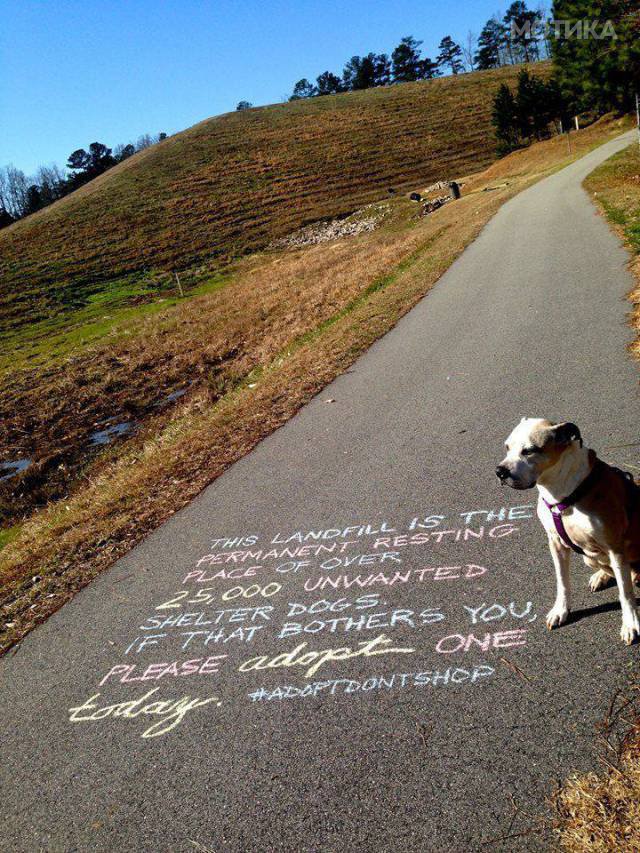 МОТИКА
THIS LANDFILL IS THE
PERMANENT RESTING
PLACE OF OVER
25,000 UNWANTED
SHELTER DOGS.
IF THAT BOTHERS YOU,
PLEASE adopt ONE
today. #ADOPTDONTSHOP